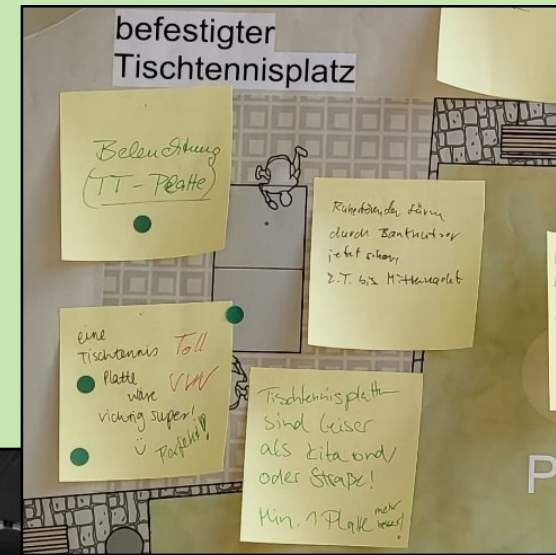 befestigter
Tischtennisplatz
Beleuchtung
(TT-Platte)
Ruhestörender Lärm
durch Banknutzer
jetzt schon
z.T. bis Mitternacht
eine
Tischtennis
Platte
wäre
richtig super!
Toll
Perfekt!
Tischtennisplatten
sind leiser
als Kita und/
oder Straße!
Min. 1 Platte
mehr
besser!
P